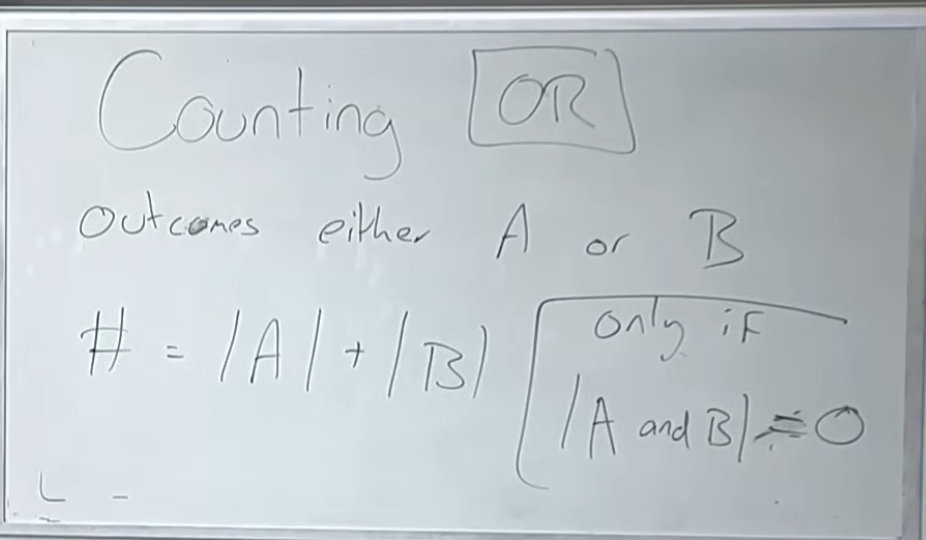 Counting OR
Outcomes either A or B
# = |A| + |B|
only if
|A and B| = 0